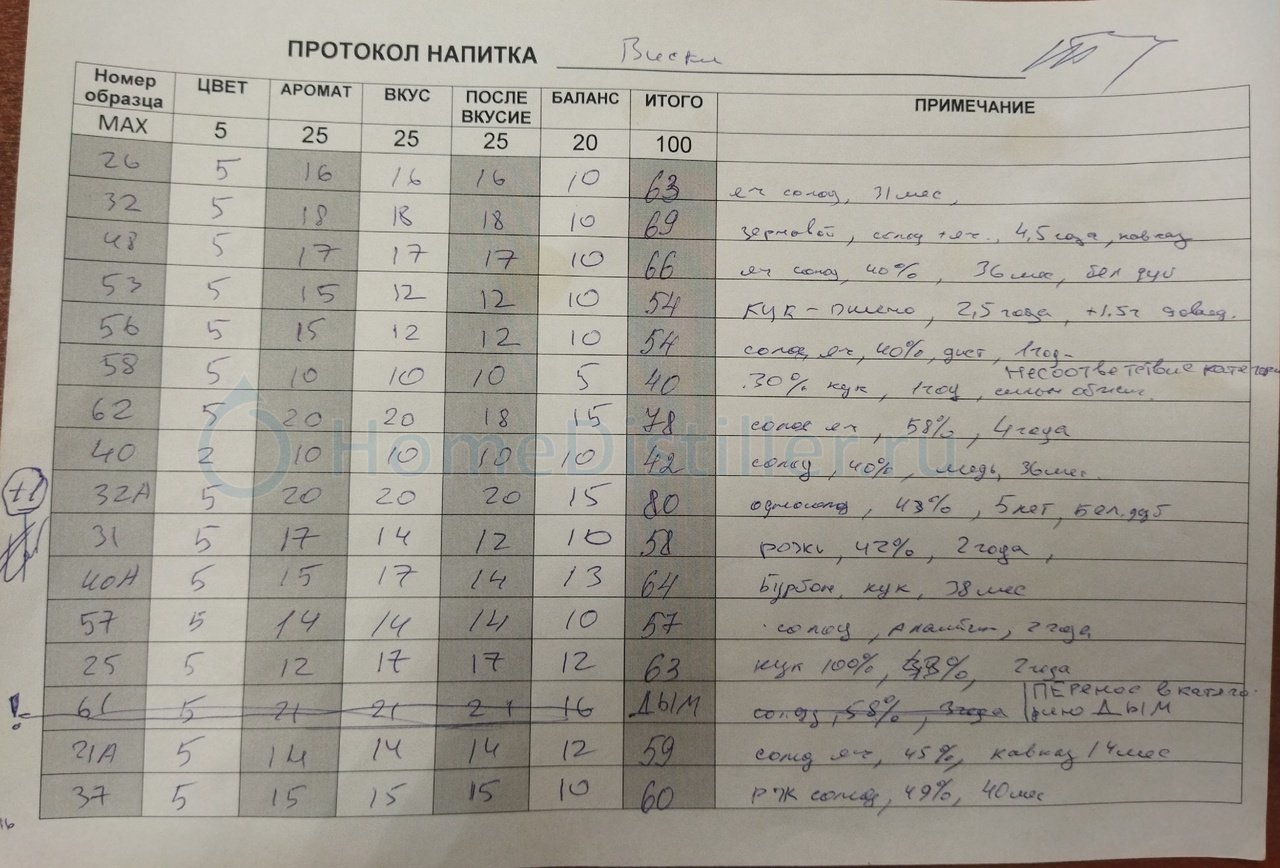 ПРОТОКОЛ НАПИТКА Виски
Номер образца ЦВЕТ АРОМАТ ВКУС ПОСЛЕ ВКУСИЕ БАЛАНС ИТОГО ПРИМЕЧАНИЕ
MAX 5 25 25 25 20 100
26 5 16 16 16 10 63 яч солод, 31 мес,
32 5 18 18 18 10 69 зерновой, солод + яч., 4,5 года, кавказ
48 5 17 17 17 10 66 яч солод, 40%, 36 мес, бел дуб
53 5 15 12 12 10 54 КУК - пшено, 2,5 года, +1.5г
56 5 15 12 12 10 54 солод яч, 40%, дист, 1 год
Несоответствие категори
58 5 10 10 10 5 40 30% кук, 1 год, сильн обжиг.
62 5 20 20 18 15 78 солод яч, 58%, 4 года
40 2 10 10 10 10 42 солод, 40%, медь, 36 мес.
+1 32А 5 20 20 20 15 80 односолод, 43%, 5 лет, бел. дуб
31 5 17 14 12 10 58 рожь, 42%, 2 года,
40А 5 15 17 14 13 64 Бурбон, кук, 38 мес
57 5 14 14 14 10 57 солод, 2 года
25 5 12 17 17 12 63 кук 100%, 2 года
! 61 5 21 21 21 16 ДЫМ солод, 58%, 3 года ПЕРенос в катего-
рию ДЫМ
21А 5 14 14 14 12 59 солод яч, 45%, кавказ 14 мес
37 5 15 15 15 10 60 рж солод, 49%, 40 мес
HomeDistiller.ru